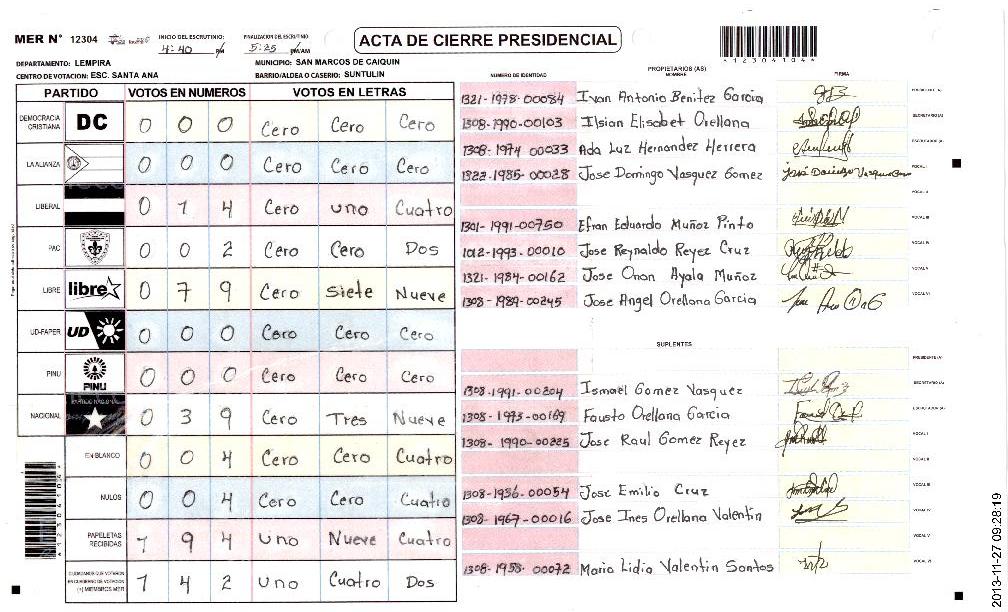 MER N° 12304 INICIO DEL ESCRUTINIO: 4:40 PM FINALIZACION DEL ESCRUTINIO: 5:25 PM/AM
ACTA DE CIERRE PRESIDENCIAL
*123041044*
DEPARTAMENTO: LEMPIRA MUNICIPIO: SAN MARCOS DE CAIQUIN
CENTRO DE VOTACION: ESC. SANTA ANA BARRIO/ALDEA O CASERIO: SUNTULIN
PARTIDO VOTOS EN NUMEROS VOTOS EN LETRAS
DEMOCRACIA CRISTIANA DC 0 0 0 Cero Cero Cero
LA ALIANZA 0 0 0 Cero Cero Cero
LIBERAL 0 1 4 Cero uno Cuatro
PAC 0 0 2 Cero Cero Dos
LIBRE libre 0 7 9 Cero Siete Nueve
UD-FAPER UD 0 0 0 Cero Cero Cero
PINU PINU 0 0 0 Cero Cero Cero
NACIONAL PARTIDO NACIONAL 0 3 9 Cero Tres Nueve
EN BLANCO 0 0 4 Cero Cero Cuatro
NULOS 0 0 4 Cero Cero Cuatro
PAPELETAS RECIBIDAS 1 9 4 uno Nueve Cuatro
CIUDADANOS QUE VOTARON EN CUADERNO DE VOTACION (+) MIEMBROS MER 1 4 2 uno Cuatro Dos
NUMERO DE IDENTIDAD PROPIETARIOS (AS) NOMBRE FIRMA
1321-1978-00084 Ivan Antonio Benitez Garcia PRESIDENTE (A)
1308-1990-00103 Ilsian Elisabet Orellana SECRETARIO (A)
1308-1974 00033 Ada Luz Hernandez Herrera ESCRUTADOR (A)
1322-1985-00028 Jose Domingo Vasquez Gomez VOCAL I
VOCAL II
1301-1991-00750 Efran Eduardo Muñoz Pinto VOCAL III
1012-1993-00010 Jose Reynaldo Reyez Cruz VOCAL IV
1321-1984-00162 Jose Onan Ayala Muñoz VOCAL V
1308-1989-00245 Jose Angel Orellana Garcia VOCAL VI
SUPLENTES
PRESIDENTE (A)
1308-1991-00204 Ismael Gomez Vasquez SECRETARIO (A)
1308-1993-00169 Fausto Orellana Garcia ESCRUTADOR (A)
1308-1990-00225 Jose Raul Gomez Reyez VOCAL I
VOCAL II
1308-1936-00054 Jose Emilio Cruz VOCAL III
1308-1967-00016 Jose Ines Orellana Valentin VOCAL IV
VOCAL V
1308-1958-00072 Maria Lidia Valentin Santos VOCAL VI
2013-11-27 09:28:19